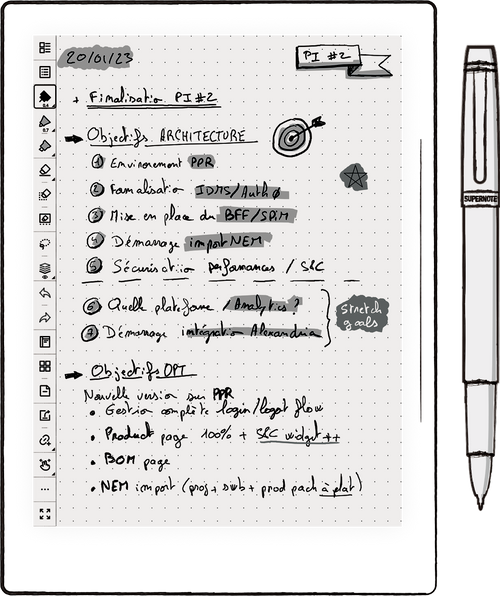 20/01/23
PI #2
+ Finalisation PI #2
→ Objectifs ARCHITECTURE
1 Environement PPR
2 Formalisation IDMS/Auth0
3 Mise en place du BFF/SPIM
4 Démarrage import NEM
5 Sécurisation performances / SRC
6 Quelle plateforme Analytics ?
7 Démarrage intégration Alexandria
stretch
goals
→ Objectifs OPT
Nouvelle version sur PPR
• Gestion complète login/logot flow
• Product page 100% + SRC widget ++
• BOM page
• NEM import (proj + swb + prod pack à plat)
SUPERNOTE